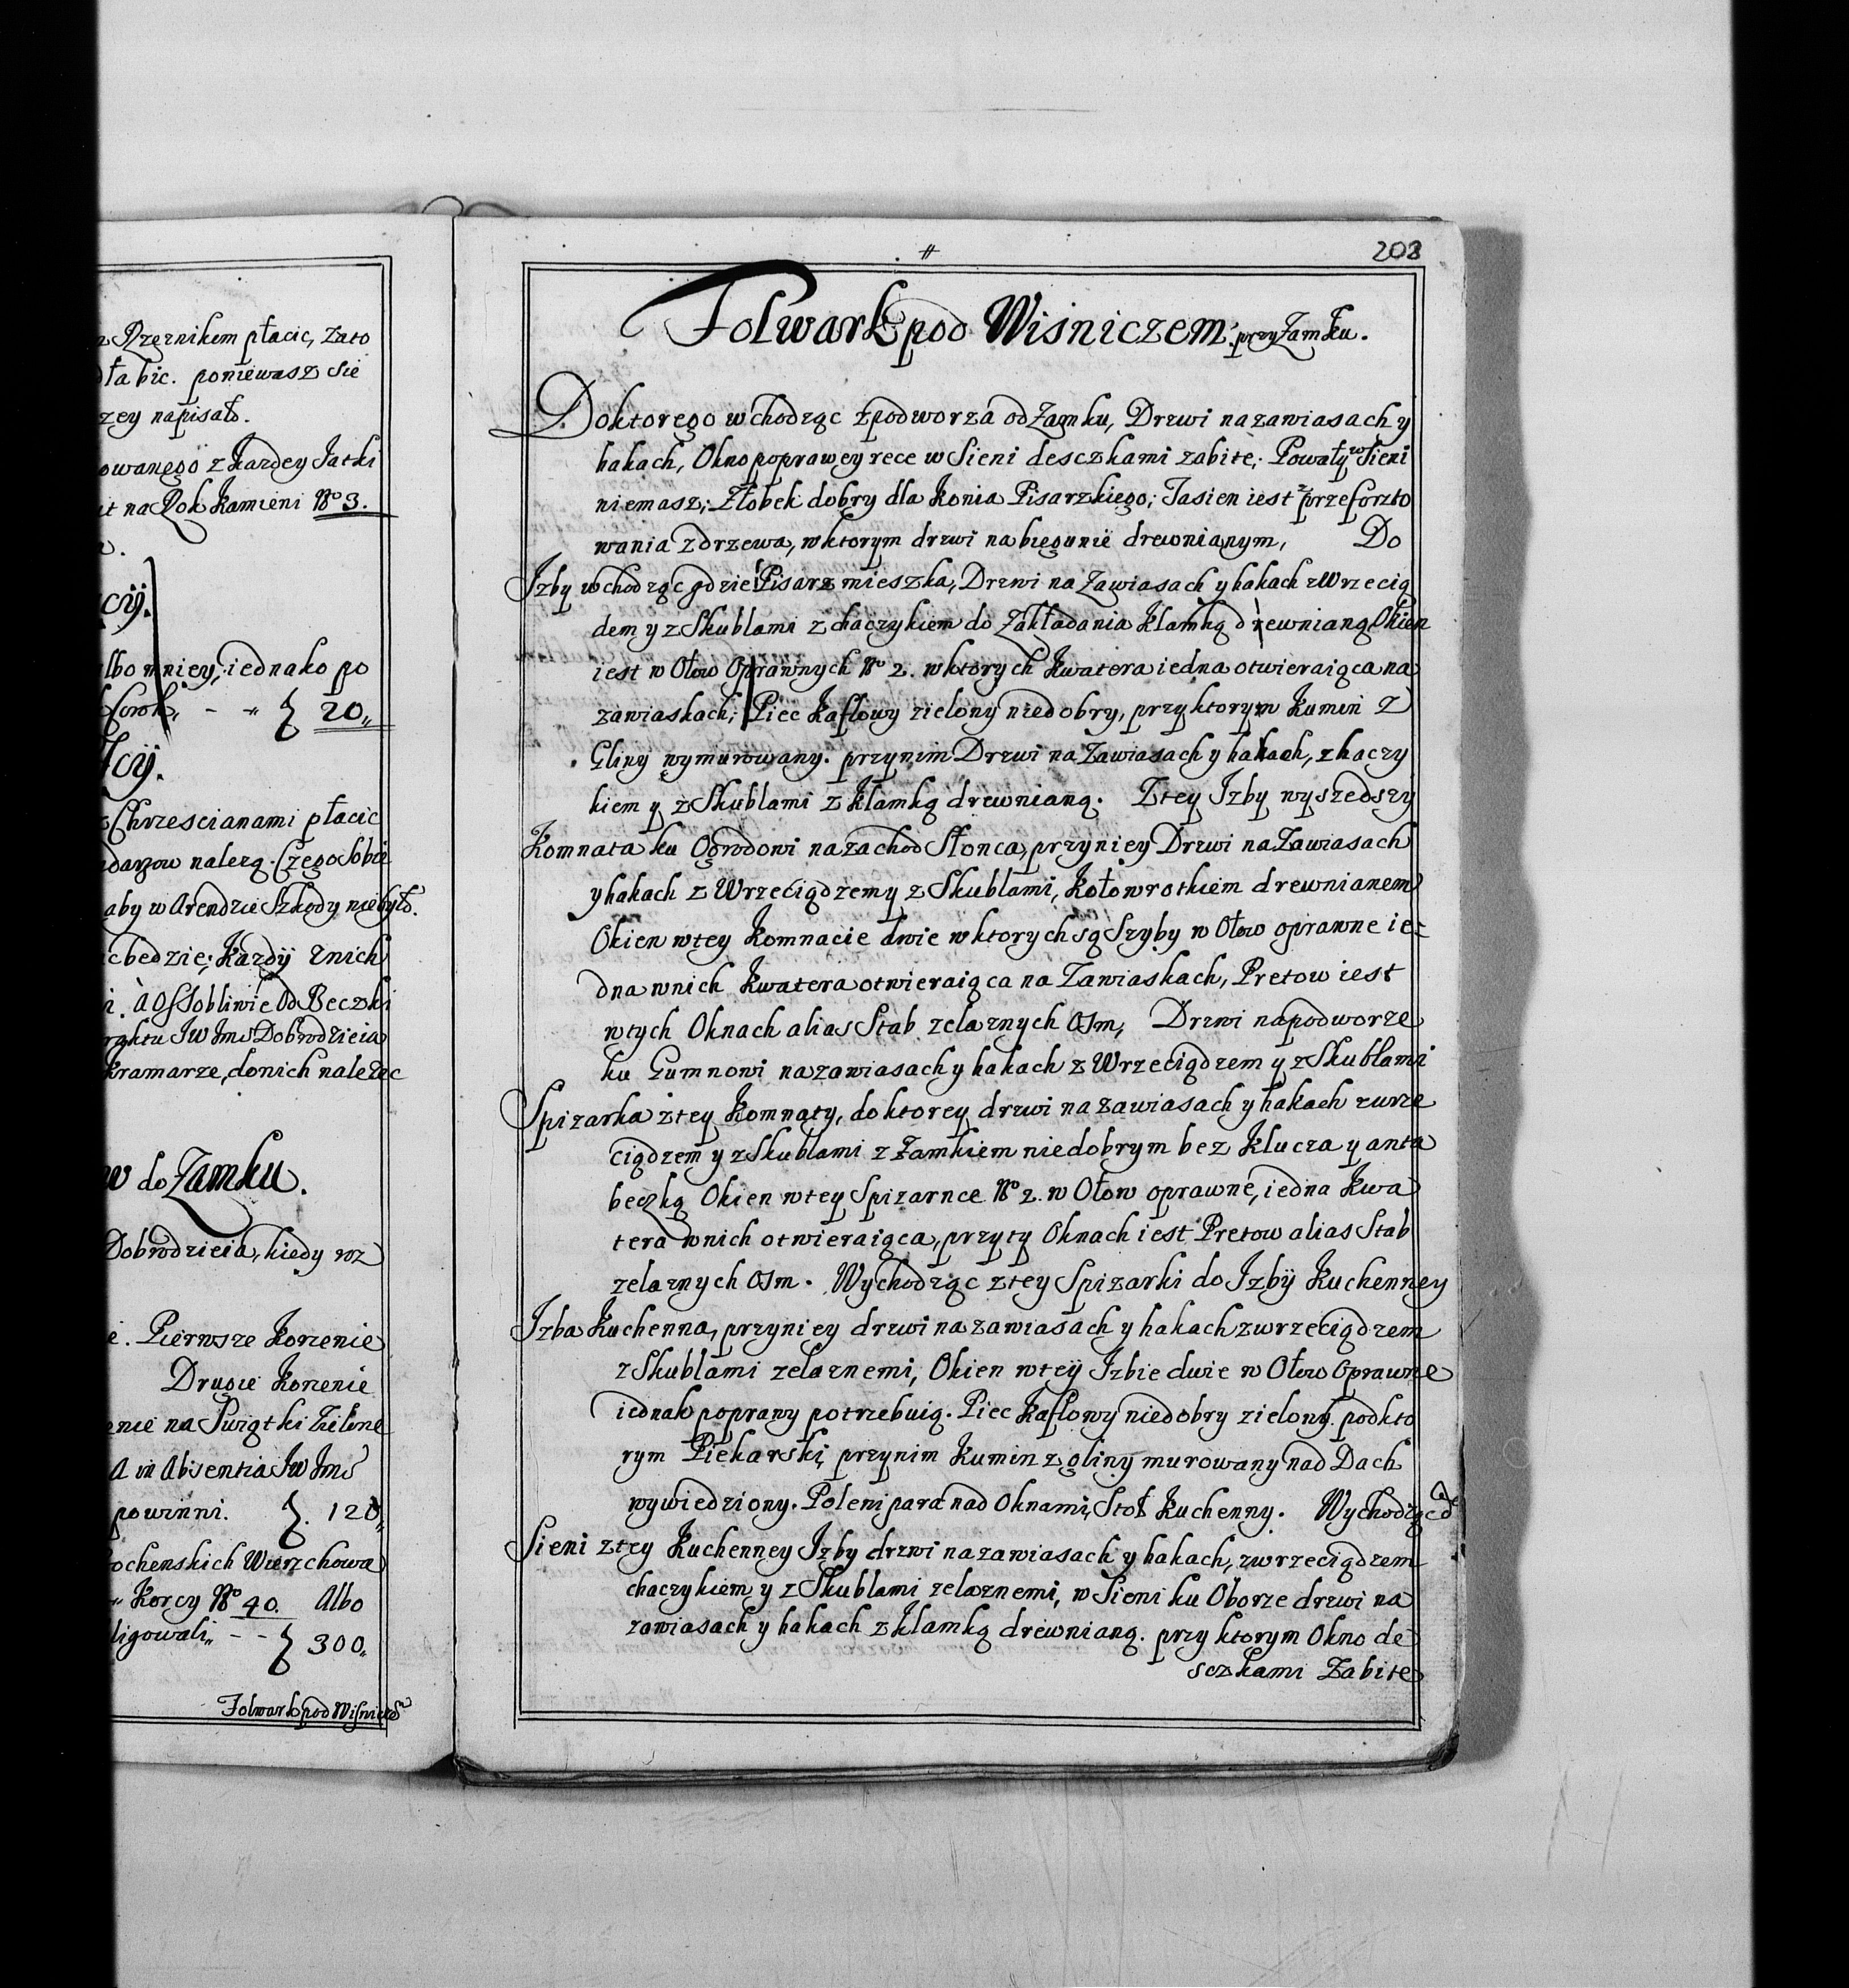 Rzeznikem płacic, zato
bic. poniewasz sie
zey napisało.
z kazdey Jatki
na Rok kamieni No 3.
albo mniey, iednako po
20,,
Chrzescianami płacic
nalezą. Czego sobie
aby w Arendzie Szkody niebyło.
bedzie; kazdÿ znich
à Ossobliwie od Beczki
JW Jmś Dobrodzieia
kramarze, donich nalezec
do Zamku.
Dobrodzieia, kiedy roz
Pierwsze korzenie
Drugie korzenie
na Swiątki Zielone
A in Absentia JW Jmś
powinni. 120,,
Wierzchowa
Korcy No 40. Albo
300,,
Folwark pod Wisnicze
208
Folwark pod Wiśniczem przy Zamku.
Doktorego wchodząc zpodworza od Zamku, Drzwi nazawiasach y
hakach, Okno poprawey rece w Sieni desczkami zabite; Powały w Sieni
niemasz; Złobek dobry dla konia Pisarzkiego; Tasien iest z przeforszto
wania zdrzewa, wktorym drzwi nabiegunie drewnianym, Do
Izby wchodząc gdzie Pisarz mieszka, Drzwi na Zawiasach y hakach z Wrzecią
dem y z Skublami z chaczykiem do Zakładania klamką drewnianą Okien
iest w Ołow Oprawnych No 2. wktorych kwatera iedna otwieraiąca na
zawiaskach; Piec kaflowy zielony niedobry, przyktorym kumin z
Gliny wymurowany. przynim Drzwi na Zawiasach y hakach, z haczy
kiem y z Skublami z klamką drewnianą. Ztey Izby wyszedszy
Komnata ku Ogrodowi nazachod Słonca, przyniey Drzwi na Zawiasach
y hakach z Wrzeciądzem y z Skublami, kołowrotkiem drewnianem
Okien wtey komnacie dwie wktorych są Szyby w Ołow oprawne ie-
dna wnich kwatera otwieraiąca na Zawiaskach, Pretow iest
wtych Oknach alias Stab zelaznych Osm, Drzwi napodworze
ku Gumnowi nazawiasach y hakach z Wrzeciądzem y z Skublami
Spizarka ztey komnaty, doktorey drzwi nazawiasach y hakach zwrze
ciądzem y z Skublami z Zamkiem niedobrym bez klucza y anta
beczką Okien wtey Spizarnce No 2. w Ołow oprawne, iedna kwa
tera wnich otwieraiąca, przyty Oknach iest Pretow alias Stab
zelaznych Osm. Wychodząc ztey Spizarki do Izbÿ kuchenney
Izba kuchenna, przyniey drzwi nazawiasach y hakach zwrzeciądzem
z Skublami zelaznemi, Okien wteÿ Izbie dwie w Ołow Oprawne
iednak poprawy potrzebuią. Piec kaflowy niedobry zielony. podkto
rym Piekarski, przynim kumin z gliny murowany nad Dach
wywiedziony. Poleni para nad Oknami, Stoł kuchenny. Wychodząc do
Sieni ztey kuchenney Izby drzwi nazawiasach y hakach, zwrzeciądzem
chaczykiem y z Skublami zelaznemi, w Sieni ku Oborze drzwi na
zawiasach y hakach z klamką drewnianą. przy ktorym Okno de
sczkami Zabite